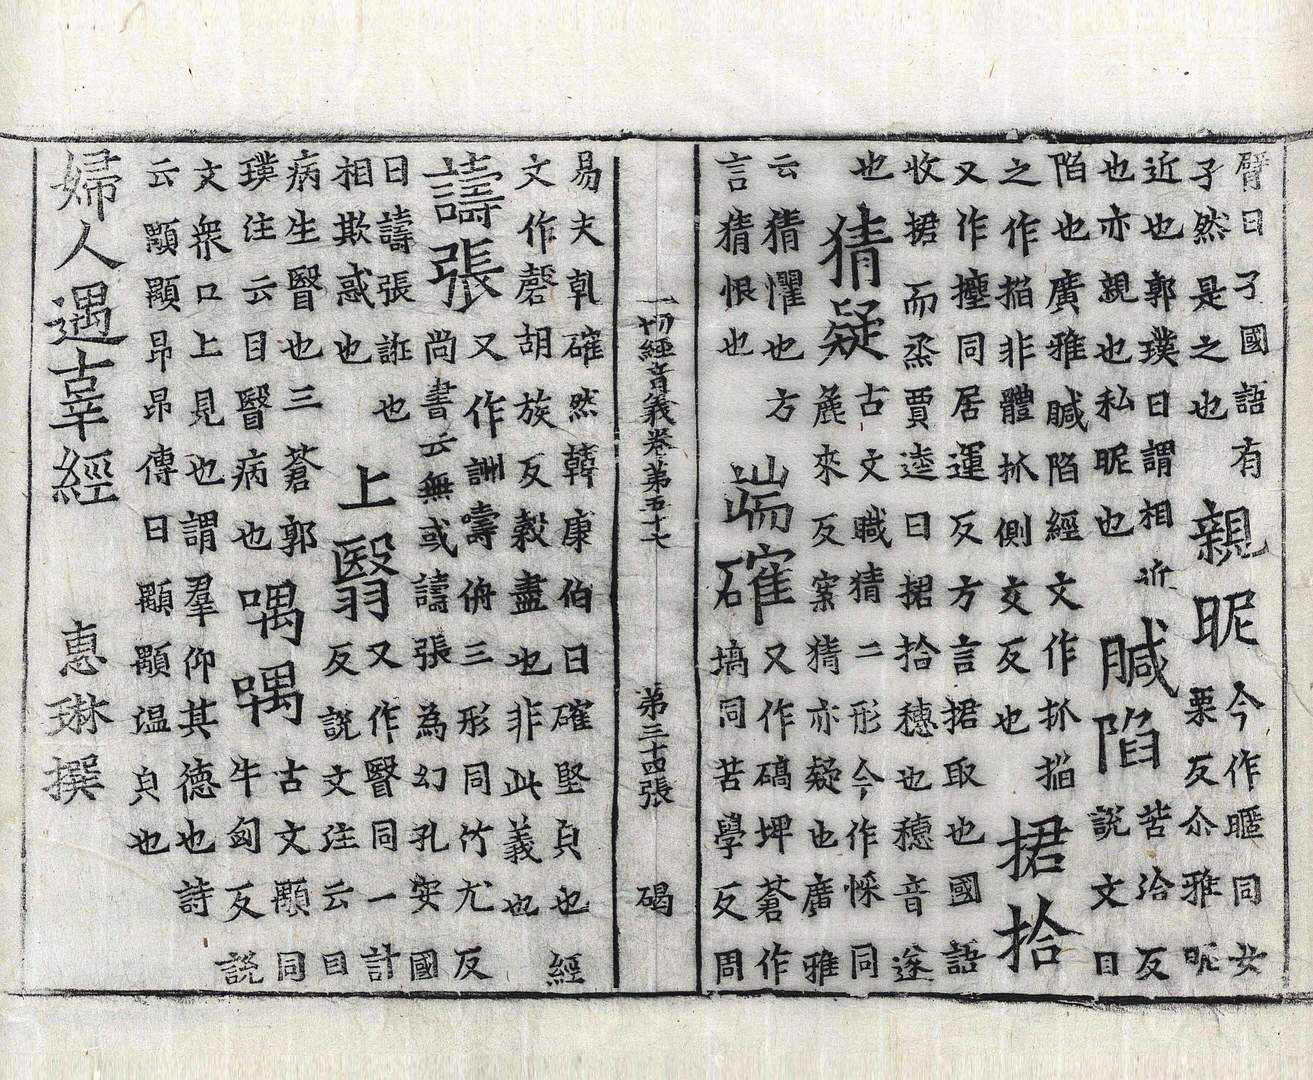 臂曰孑國語有
孑然是之也
親昵
今作暱同女
栗反尒雅昵
近也郭璞曰謂相近
也亦親也私昵也
陷
苦洽反
説文曰
陷也廣雅陷經文作抓掐
之作掐非體抓側交反也
捃拾
又作攈同居運反方言捃取也國語
收捃而烝賈逵曰捃拾穗也穗音遂
也
猜疑
古文猜二形今作倸同
麁來反案猜亦疑也廣雅
云猜懼也方
言猜恨也
端確
又作碻埤蒼作
塙同苦學反周
一切經音義卷第五十七　第三十四張　碣
易夫乹確然韓康伯曰確堅皃也經
文作胡族反縠盡也非此義也
譸張
又作詶嚋侜三形同竹尤反
尚書云無或譸張為幻孔安國
曰譸張誑也
相欺惑也
上翳
又作瞖同一計
反説文注云目
病生瞖也三蒼郭
璞注云目瞖病也
喁喁
古文顒同
牛匈反説
文衆口上見也謂羣仰其德也詩
云顒顒昂昂傳曰顒顒温皃也
婦人遇辜經　惠琳撰